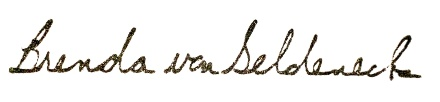 Brenda von Seldeneck